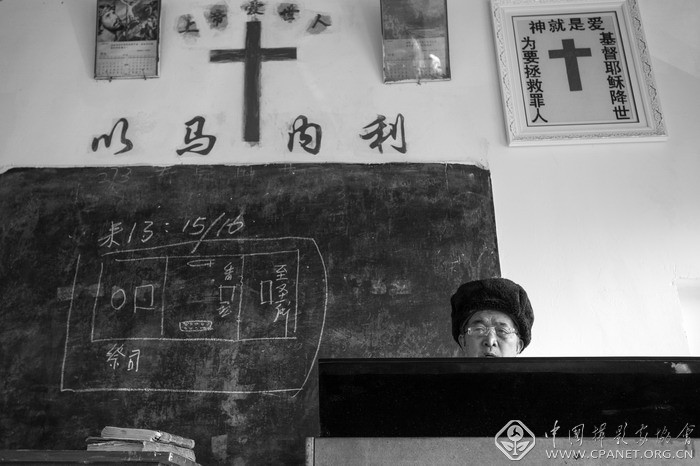 上帝爱世人
神就是爱
基督耶稣降世
为要拯救罪人
以马内利
来13:15/16
香
至圣所
祭司
中国摄影家协会
WWW.CPANET.ORG.CN